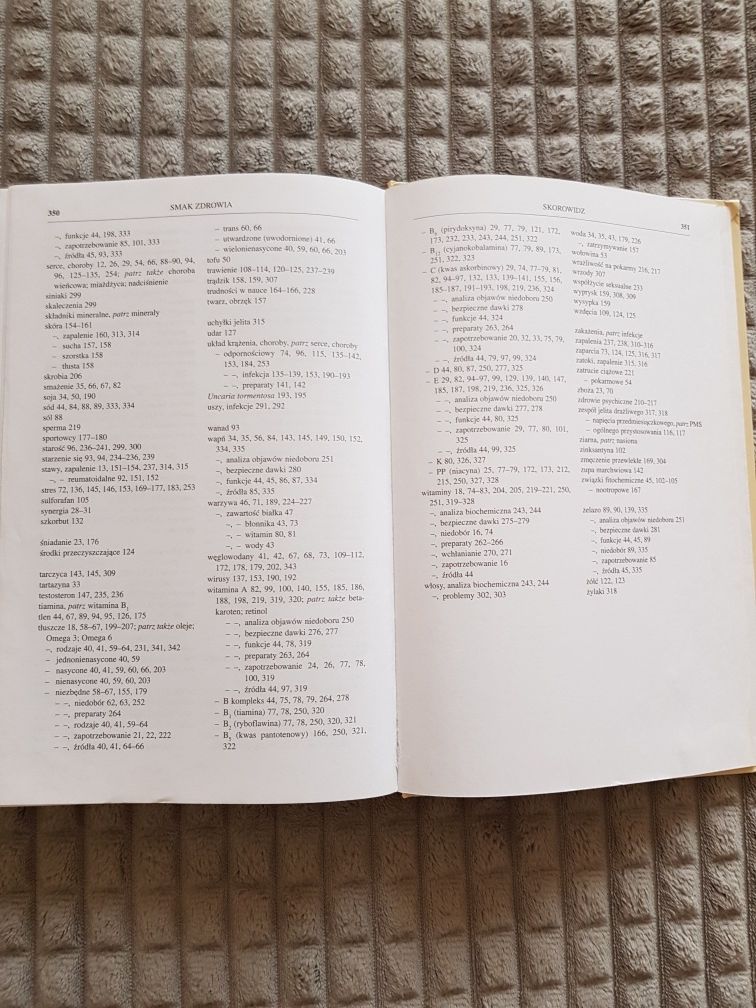 350
SMAK ZDROWIA
–, funkcje 44, 198, 333
–, zapotrzebowanie 85, 101, 333
–, źródła 45, 93, 333
serce, choroby 12, 26, 29, 54, 66, 88–90, 94,
96, 125–135, 254; patrz także choroba
wieńcowa; miażdżyca; nadciśnienie
siniaki 299
skaleczenia 299
składniki mineralne, patrz minerały
skóra 154–161
–, zapalenie 160, 313, 314
– sucha 157, 158
– szorstka 158
– tłusta 158
skrobia 206
smażenie 35, 66, 67, 82
soja 34, 50, 190
sód 44, 84, 88, 89, 333, 334
sól 88
sperma 219
sportowcy 177–180
starość 96, 236–241, 299, 300
starzenie się 93, 94, 234–236, 239
stawy, zapalenie 13, 151–154, 237, 314, 315
–, – reumatoidalne 92, 151, 152
stres 72, 136, 145, 146, 153, 169–177, 183, 253
sulforafan 105
synergia 28–31
szkorbut 132
śniadanie 23, 176
środki przeczyszczające 124
tarczyca 143, 145, 309
tartazyna 33
testosteron 147, 235, 236
tiamina, patrz witamina B₁
tlen 44, 67, 89, 94, 95, 126, 175
tłuszcze 18, 58–67, 199–207; patrz także oleje;
Omega 3; Omega 6
–, rodzaje 40, 41, 59–64, 231, 341, 342
– jednonienasycone 40, 59
– nasycone 40, 41, 59, 60, 66, 203
– nienasycone 40, 59, 60, 203
– niezbędne 58–67, 155, 179
– –, niedobór 62, 63, 252
– –, preparaty 264
– –, rodzaje 40, 41, 59–64
– –, zapotrzebowanie 21, 22, 222
– –, źródła 40, 41, 64–66
– trans 60, 66
– utwardzone (uwodornione) 41, 66
– wielonienasycone 40, 59, 60, 66, 203
tofu 50
trawienie 108–114, 120–125, 237–239
trądzik 158, 159, 307
trudności w nauce 164–166, 228
twarz, obrzęk 157
uchyłki jelita 315
udar 127
układ krążenia, choroby, patrz serce, choroby
– odpornościowy 74, 96, 115, 135–142,
153, 184, 253
– –, infekcja 135–139, 153, 190–193
– –, preparaty 141, 142
Uncaria tormentosa 193, 195
uszy, infekcje 291, 292
wanad 93
wapń 34, 35, 56, 84, 143, 145, 149, 150, 152,
334, 335
–, analiza objawów niedoboru 251
–, bezpieczne dawki 280
–, funkcje 44, 45, 86, 87, 334
–, źródła 85, 335
warzywa 46, 71, 189, 224–227
–, zawartość białka 47
–, – błonnika 43, 73
–, – witamin 80, 81
–, – wody 43
węglowodany 41, 42, 67, 68, 73, 109–112,
172, 178, 179, 202, 343
wirusy 137, 153, 190, 192
witamina A 82, 99, 100, 140, 155, 185, 186,
188, 198, 219, 319, 320; patrz także beta-
karoten; retinol
– –, analiza objawów niedoboru 250
– –, bezpieczne dawki 276, 277
– –, funkcje 44, 78, 319
– –, preparaty 263, 264
– –, zapotrzebowanie 24, 26, 77, 78,
100, 319
– –, źródła 44, 97, 319
– B kompleks 44, 75, 78, 79, 264, 278
– B₁ (tiamina) 77, 78, 250, 320
– B₂ (ryboflawina) 77, 78, 250, 320, 321
– B₅ (kwas pantotenowy) 166, 250, 321,
322
SKOROWIDZ
351
– B₆ (pirydoksyna) 29, 77, 79, 121, 172,
173, 232, 233, 243, 244, 251, 322
– B₁₂ (cyjanokobalamina) 77, 79, 89, 173,
251, 322, 323
– C (kwas askorbinowy) 29, 74, 77–79, 81,
82, 94–97, 132, 133, 139–141, 155, 156,
185–187, 191–193, 198, 219, 236, 324
– –, analiza objawów niedoboru 250
– –, bezpieczne dawki 278
– –, funkcje 44, 324
– –, preparaty 263, 264
– –, zapotrzebowanie 20, 32, 33, 75, 79,
100, 324
– –, źródła 44, 79, 97, 99, 324
– D 44, 80, 87, 250, 277, 325
– E 29, 82, 94–97, 99, 129, 139, 140, 147,
185, 187, 198, 219, 236, 325, 326
– –, analiza objawów niedoboru 250
– –, bezpieczne dawki 277, 278
– –, funkcje 44, 80, 325
– –, zapotrzebowanie 29, 77, 80, 101,
325
– –, źródła 44, 99, 325
– K 80, 326, 327
– PP (niacyna) 25, 77–79, 172, 173, 212,
215, 250, 327, 328
witaminy 18, 74–83, 204, 205, 219–221, 250,
251, 319–328
–, analiza biochemiczna 243, 244
–, bezpieczne dawki 275–279
–, niedobór 16, 74
–, preparaty 262–266
–, wchłanianie 270, 271
–, zapotrzebowanie 16
–, źródła 44
włosy, analiza biochemiczna 243, 244
–, problemy 302, 303
woda 34, 35, 43, 179, 226
–, zatrzymywanie 157
wołowina 53
wrażliwość na pokarmy 216, 217
wrzody 307
współżycie seksualne 233
wyprysk 159, 308, 309
wysypka 159
wzdęcia 109, 124, 125
zakażenia, patrz infekcje
zapalenia 237, 238, 310–316
zaparcia 73, 124, 125, 316, 317
zatoki, zapalenie 315, 316
zatrucie ciążowe 221
– pokarmowe 54
zboża 23, 70
zdrowie psychiczne 210–217
zespół jelita drażliwego 317, 318
– napięcia przedmiesiączkowego, patrz PMS
– ogólnego przystosowania 116, 117
ziarna, patrz nasiona
zioksantyna 102
zmęczenie przewlekłe 169, 304
zupa marchwiowa 142
związki fitochemiczne 45, 102–105
– nootropowe 167
żelazo 89, 90, 139, 335
–, analiza objawów niedoboru 251
–, bezpieczne dawki 281
–, funkcje 44, 45, 89
–, niedobór 89, 335
–, zapotrzebowanie 85
–, źródła 45, 335
żółć 122, 123
żylaki 318